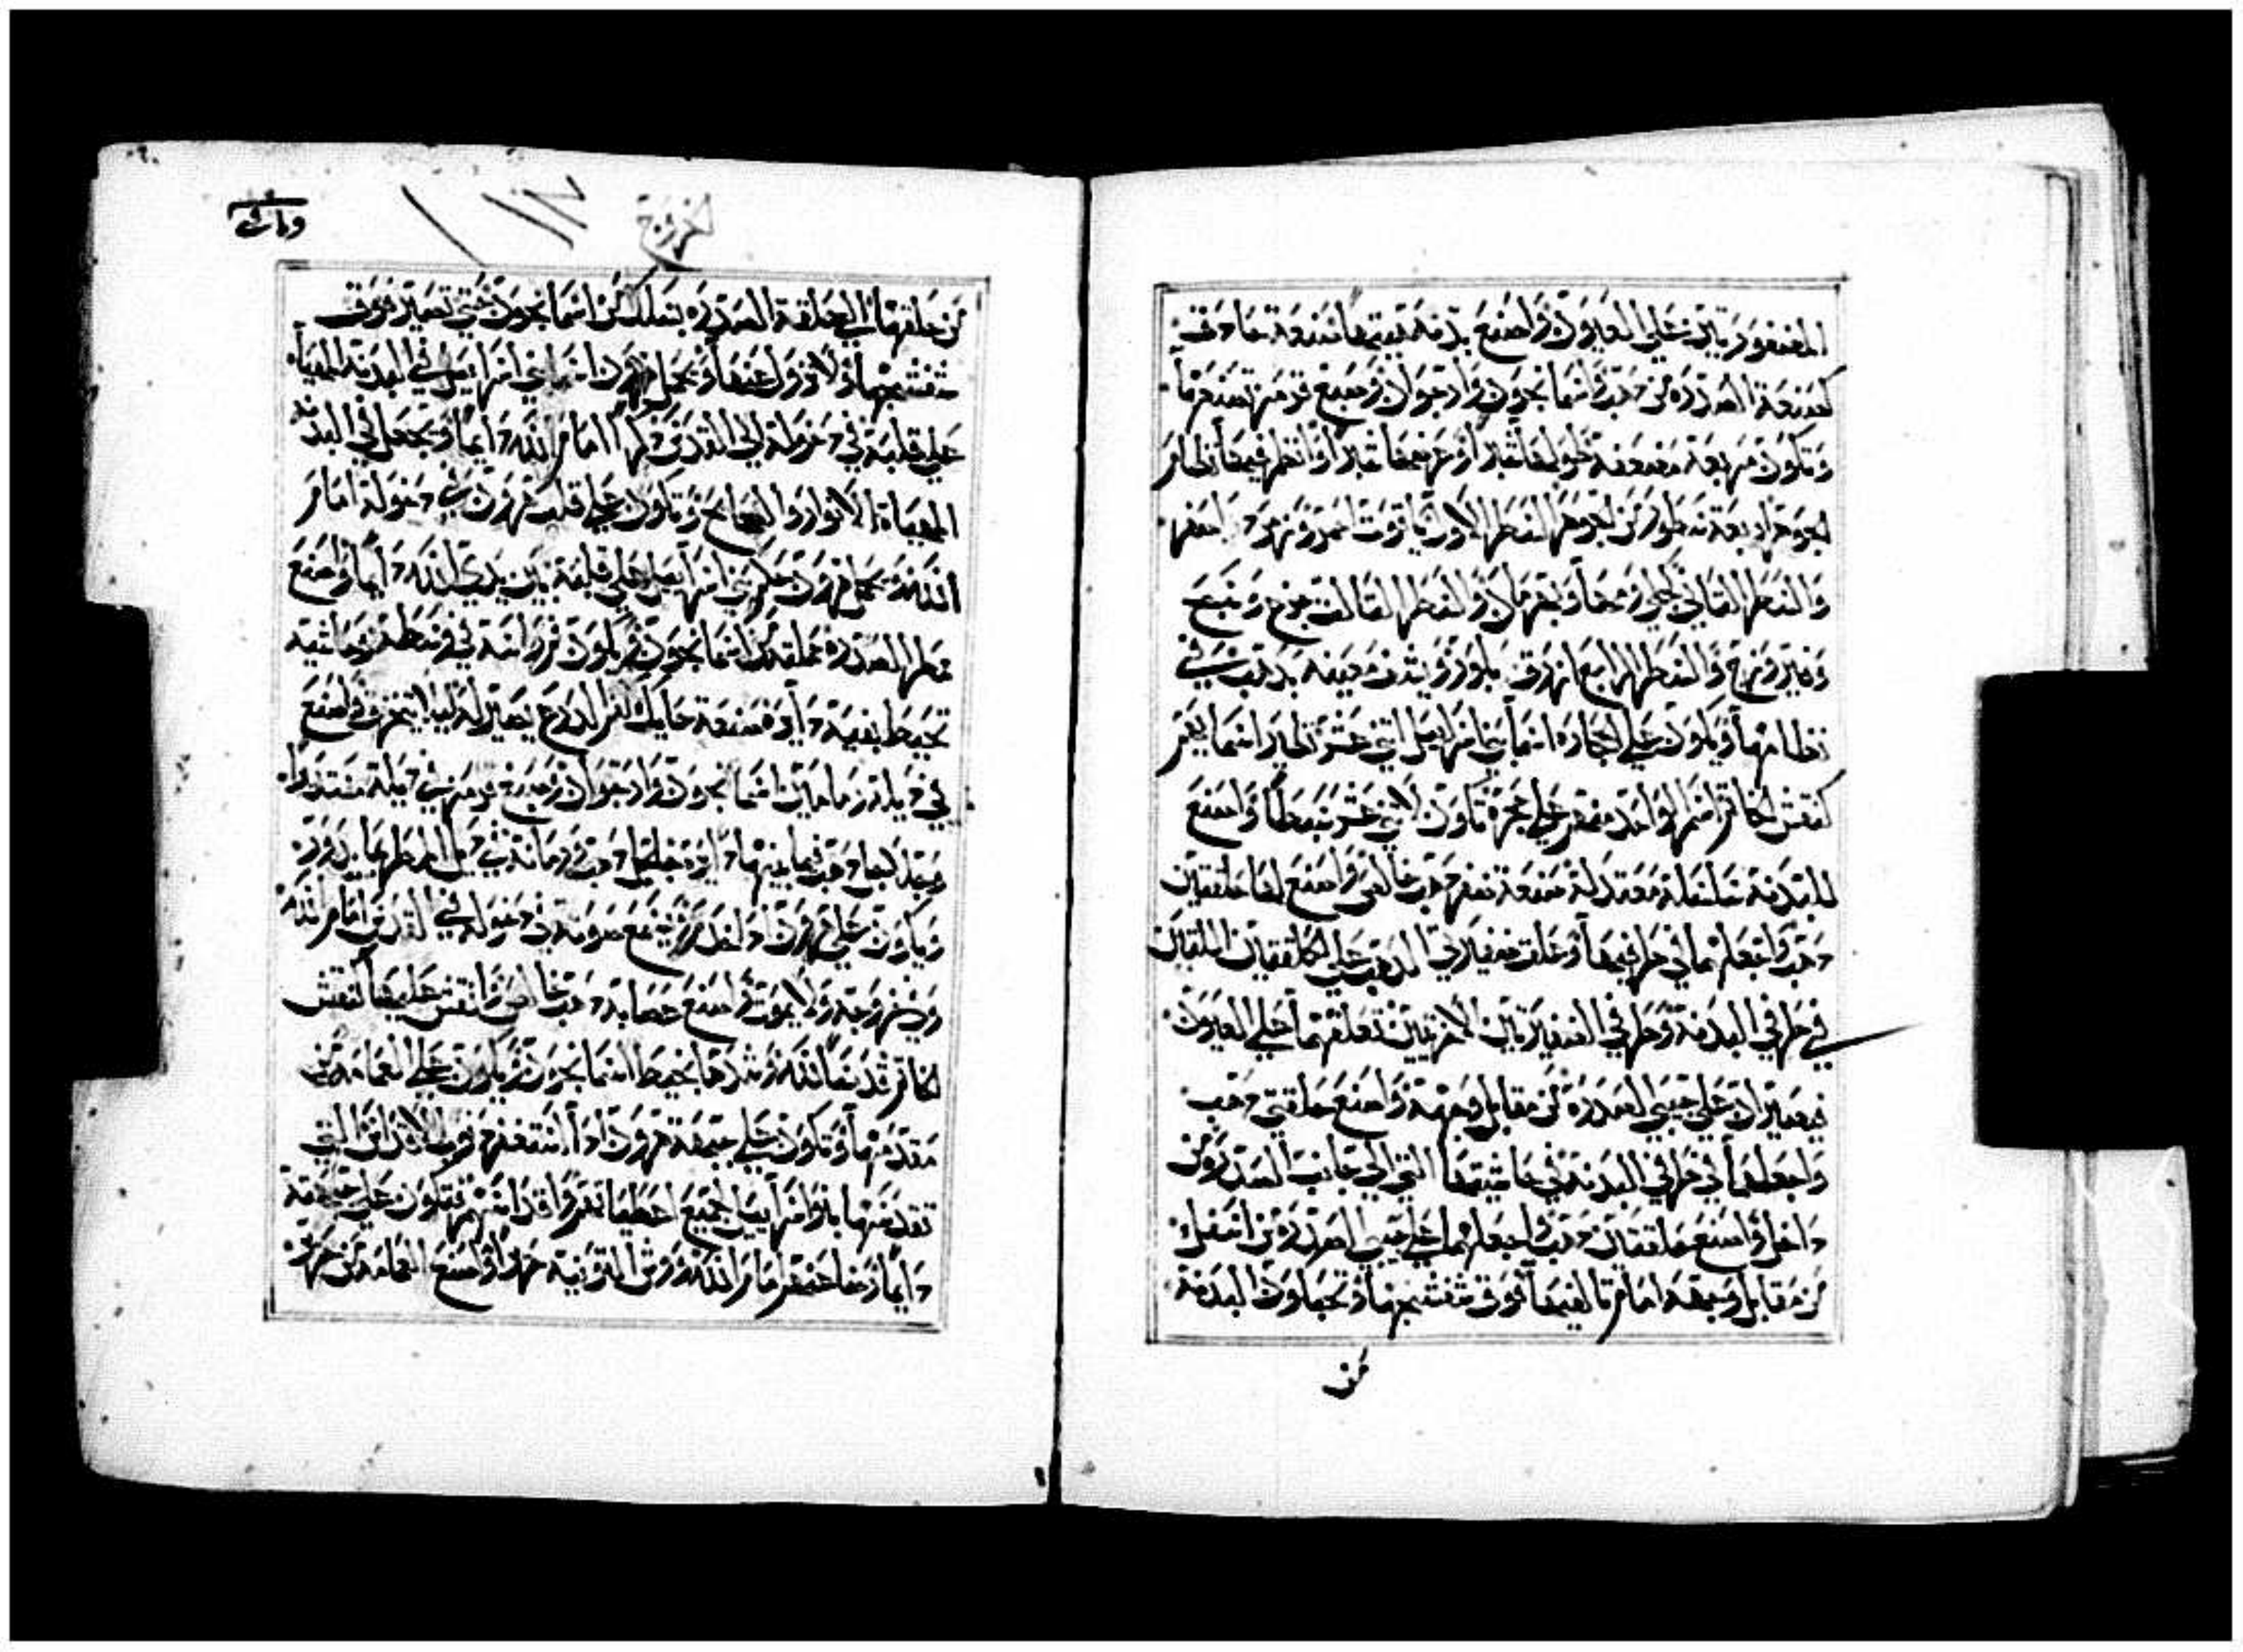 المضفورتين على العيون واصنع بدنة قيمها صنعة حاذق
كصنعة الصدرة من ذهب واسمانجون وارجوان وصبغ قرمز تصنعها
وتكون مربعة مضعفة طولها شبرا وعرضها شبرا وانظم فيها نظام
الجوهر اربعة سطور من الجوهر السطر الاول ياقوت احمر وزمرد اصفر
والسطر الثاني كحلي ومها وبهرمان والسطر الثالث جزع وسبج
وفيروزج والسطر الرابع ازرق وبلور ويشف معينة بذهب في
نظامها وتكون على الحجارة اسما بني اسراييل اثني عشر نظير اسمايهم
كنقش الخاتم اسم الواحد منهم على حجره تكون لاثني عشر سبطا واصنع
للبدنة سلسلة معتدلة صنعة ضفر ذهب خالص واصنع لها حلقتين
ذهب واجعلهما في طرفيها وعلق ضفيرتي الذهب على الحلقتين اللتين
في طرفي البدنة وطرفي الضفيرتين الاخريين تعلقهما على العيون
فيصيران على جيبي الصدرة من مقابل وجهه واصنع حلقتي ذهب
واجعلهما في طرفي البدنة في حاشيتها التي الى جانب الصدرة من
داخل واصنع حلقتين ذهب واجعلهما على جيبي الصدرة من اسفل
من مقابل وجهه امام تاليفها فوق شفشجها ويحملون البدنة
من
وماىه
خروج
من حلقتها الى حلقة الصدرة بسلك من اسمانجون حتى تصير فوق
شفشجها ولا تزول عنها ويحمل هرون اسما بني اسراييل في البدنة المهيأة
على قلبه في دخوله الى القدس ذكرا امام الله دايما وتجعل في البدنة
المهياة الانوار والصحايح وتكون على قلب هرون في دخوله امام
الله ويحمل هرون حكم بني اسراييل على قلبه بين يدي الله دايما واصنع
ممطر الصدرة جملته من اسمانجون ويكون فم راسه في وسطه وحاشية
تحيط بفيه دايرة صنعة حايك كفم الدرع يصير له ليلا يتخرق واصنع
في ذيله رمامين اسمانجون وارجوان وصبغ قرمز في ذيله مستديرا
وجلاجل ذهب فيما بينها دايرة جلجل ذهب ورمانة في ذيل الممطر بما يدور
ويكون على هرون اذا خدم ويسمع صوته في دخوله الى القدس امام الله
وفي خروجه ولا يموت واصنع عصابة ذهب خالص وانقش عليها كنقش
الخاتم قدسا لله وشدها بخيط اسمانجون ويكون على العمامة من
مقدمها وتكون على جبهة هرون اذا استغفر ذنوب الاقداس التي
تقدسها بنو اسراييل لجميع اعطيات اقداسهم فتكون على جبهته
دايما رضا عنهم امام الله ووش التونية حريرا واصنع العمامة من حرير